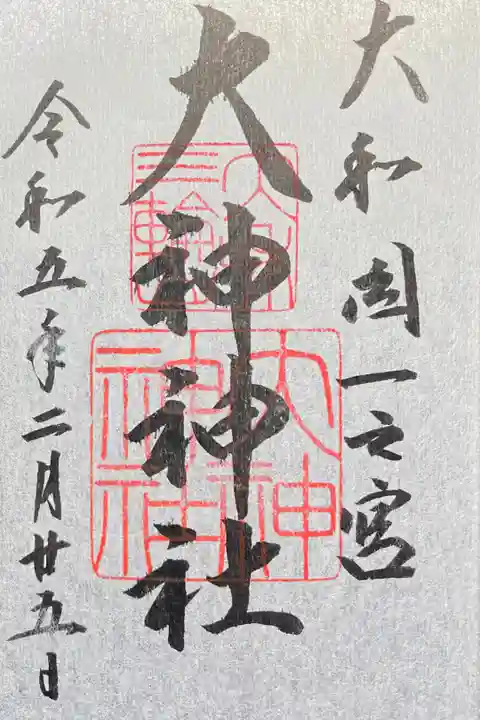 大和国一之宮
大神神社
令和五年二月廿五日
大神
神社